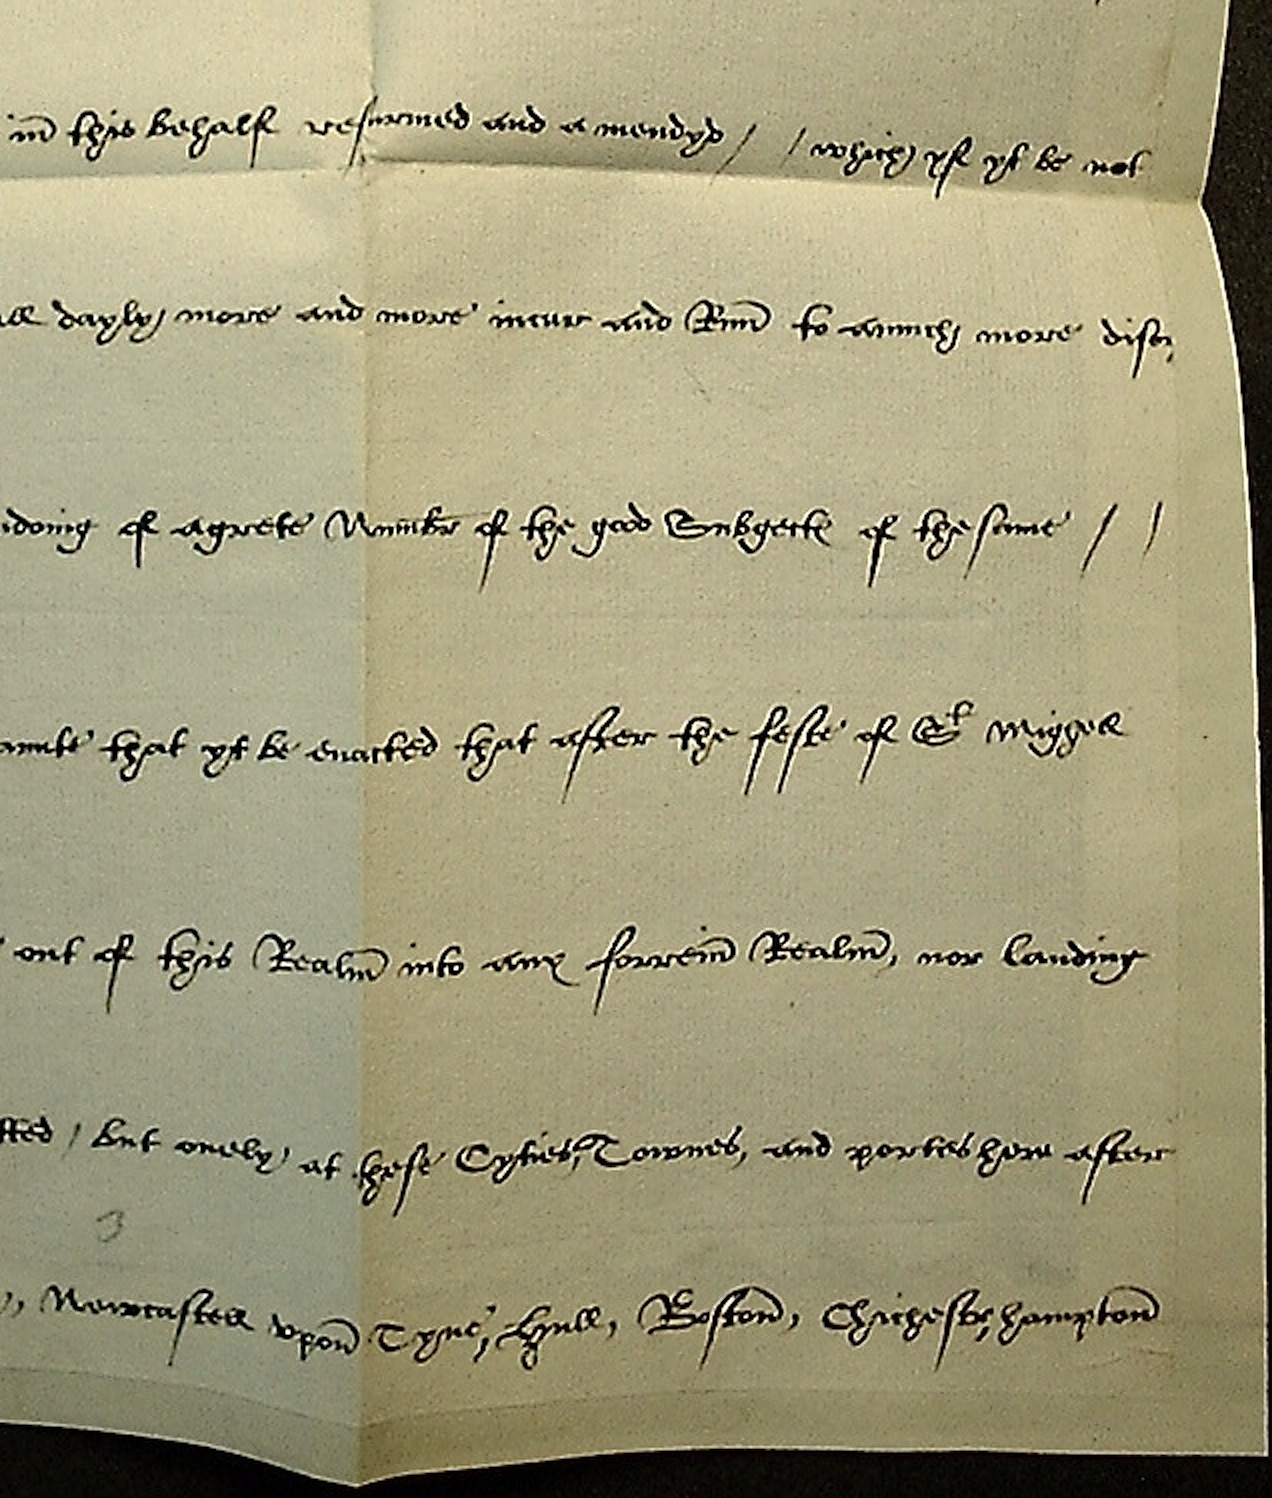 in this behalf refurmed and a mendyd / / which yf yt be not
dayly more and more incur and Runn to amuch more
of agrete Numbr of the good Subgectes of the same / /
that yt be enacted that after the feste of St Miggell
out of this Realm into any forrein Realm, nor landing
but onely at these Cyties, Townes, and portes here after
Newcastell vpon Tyne, Hull, Boston, Chichestr, hampton